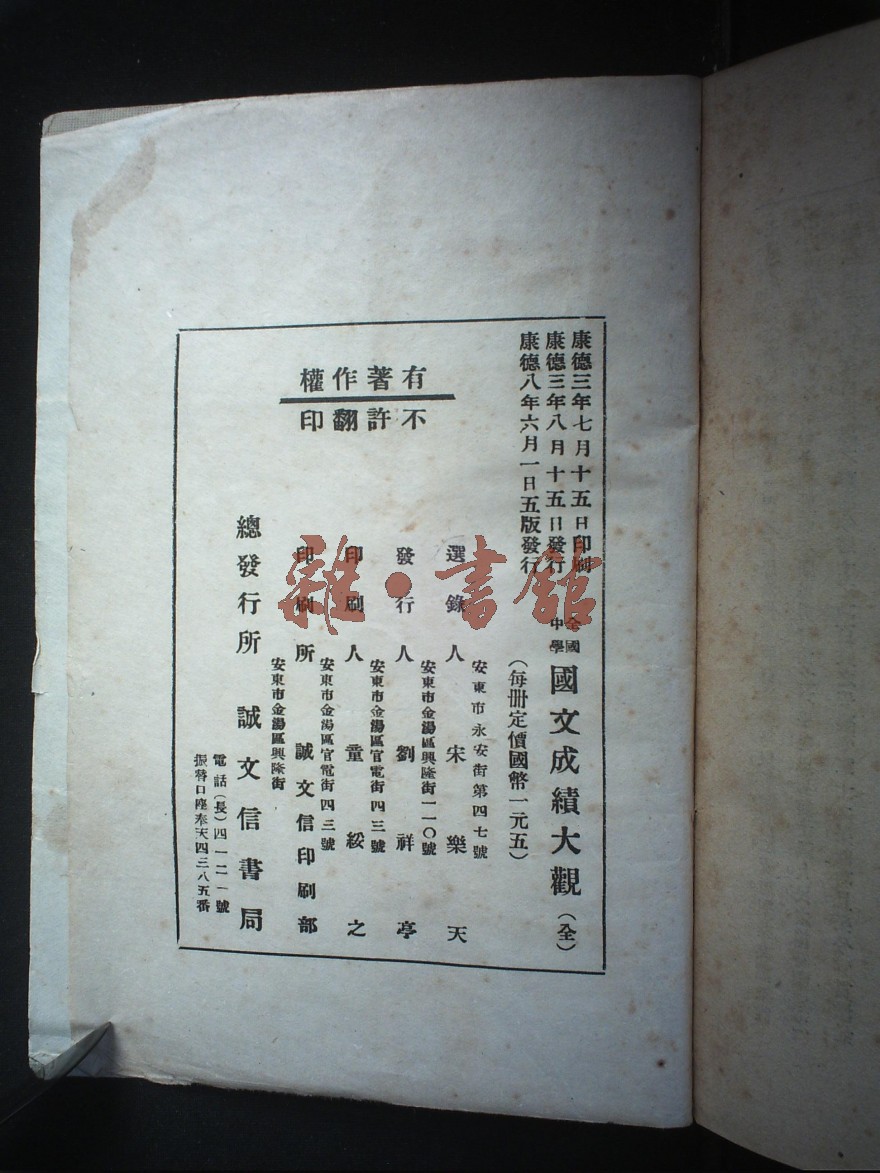 康德三年七月十五日印刷
康德三年八月十五日發行
康德八年六月一日五版發行
全國
中學
國文成績大觀（全）
（每冊定價國幣一元五）
有著作權
不許翻印
安東市永安街第四七號
選錄人 宋樂天
安東市金湯區興隆街一一〇號
發行人 劉祥亭
安東市金湯區官電街四三號
印刷人 童綏之
安東市金湯區官電街四三號
印刷所 誠文信印刷部
安東市金湯區興隆街
總發行所 誠文信書局
電話（長）四一二一號
振替口座奉天四三八五番
雜·書館